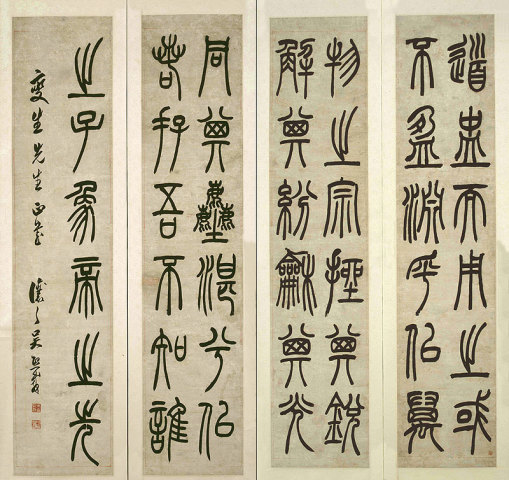 道盅而用之或
不盈淵乎佀萬
物之宗挫其銳
解其紛龢其光
同其塵湛兮佀
若存吾不知誰
之子象帝之先
燮生先生正 讓之吳熙載